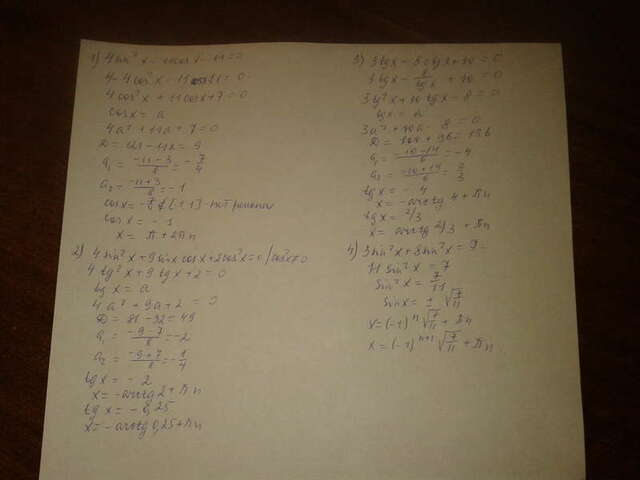 1) 4 sin² x - 11 cos x - 11 = 0
4 - 4 cos² x - 11 cos x - 11 = 0
4 cos² x + 11 cos x + 7 = 0
cos x = a
4a² + 11a + 7 = 0
D = 121 - 112 = 9
a₁ = (-11-3)/8 = -7/4
a₂ = (-11+3)/8 = -1
cos x = ∉ [-1 1] - нет решения
cos x = -1
x = π + 2πn
2) 4 sin² x + 9 sin x cos x + 2 cos² x = 0 / cos² x ≠ 0
4 tg² x + 9 tg x + 2 = 0
tg x = a
4a² + 9a + 2 = 0
D = 81 - 32 = 49
a₁ = (-9-7)/8 = -2
a₂ = (-9+7)/8 = -1/4
tg x = -2
x = -arctg 2 + πn
tg x = -0,25
x = -arctg 0,25 + πn
3) 3 tg x - 8 ctg x + 10 = 0
3 tg x - 8/tg x + 10 = 0
3 tg² x + 10 tg x - 8 = 0
tg x = a
3a² + 10a - 8 = 0
D = 100 + 96 = 196
a₁ = (-10-14)/6 = -4
a₂ = (-10+14)/6 = 2/3
tg x = -4
x = -arctg 4 + πn
tg x = 2/3
x = arctg 2/3 + πn
4) 3 sin² x + 8 sin² x =
11 sin² x = 7
sin² x = 7/11
sin x = ± √7/11
x = (-1)ⁿ √7/11 + πn
x = (-1)ⁿ⁺¹ √7/11 + πn